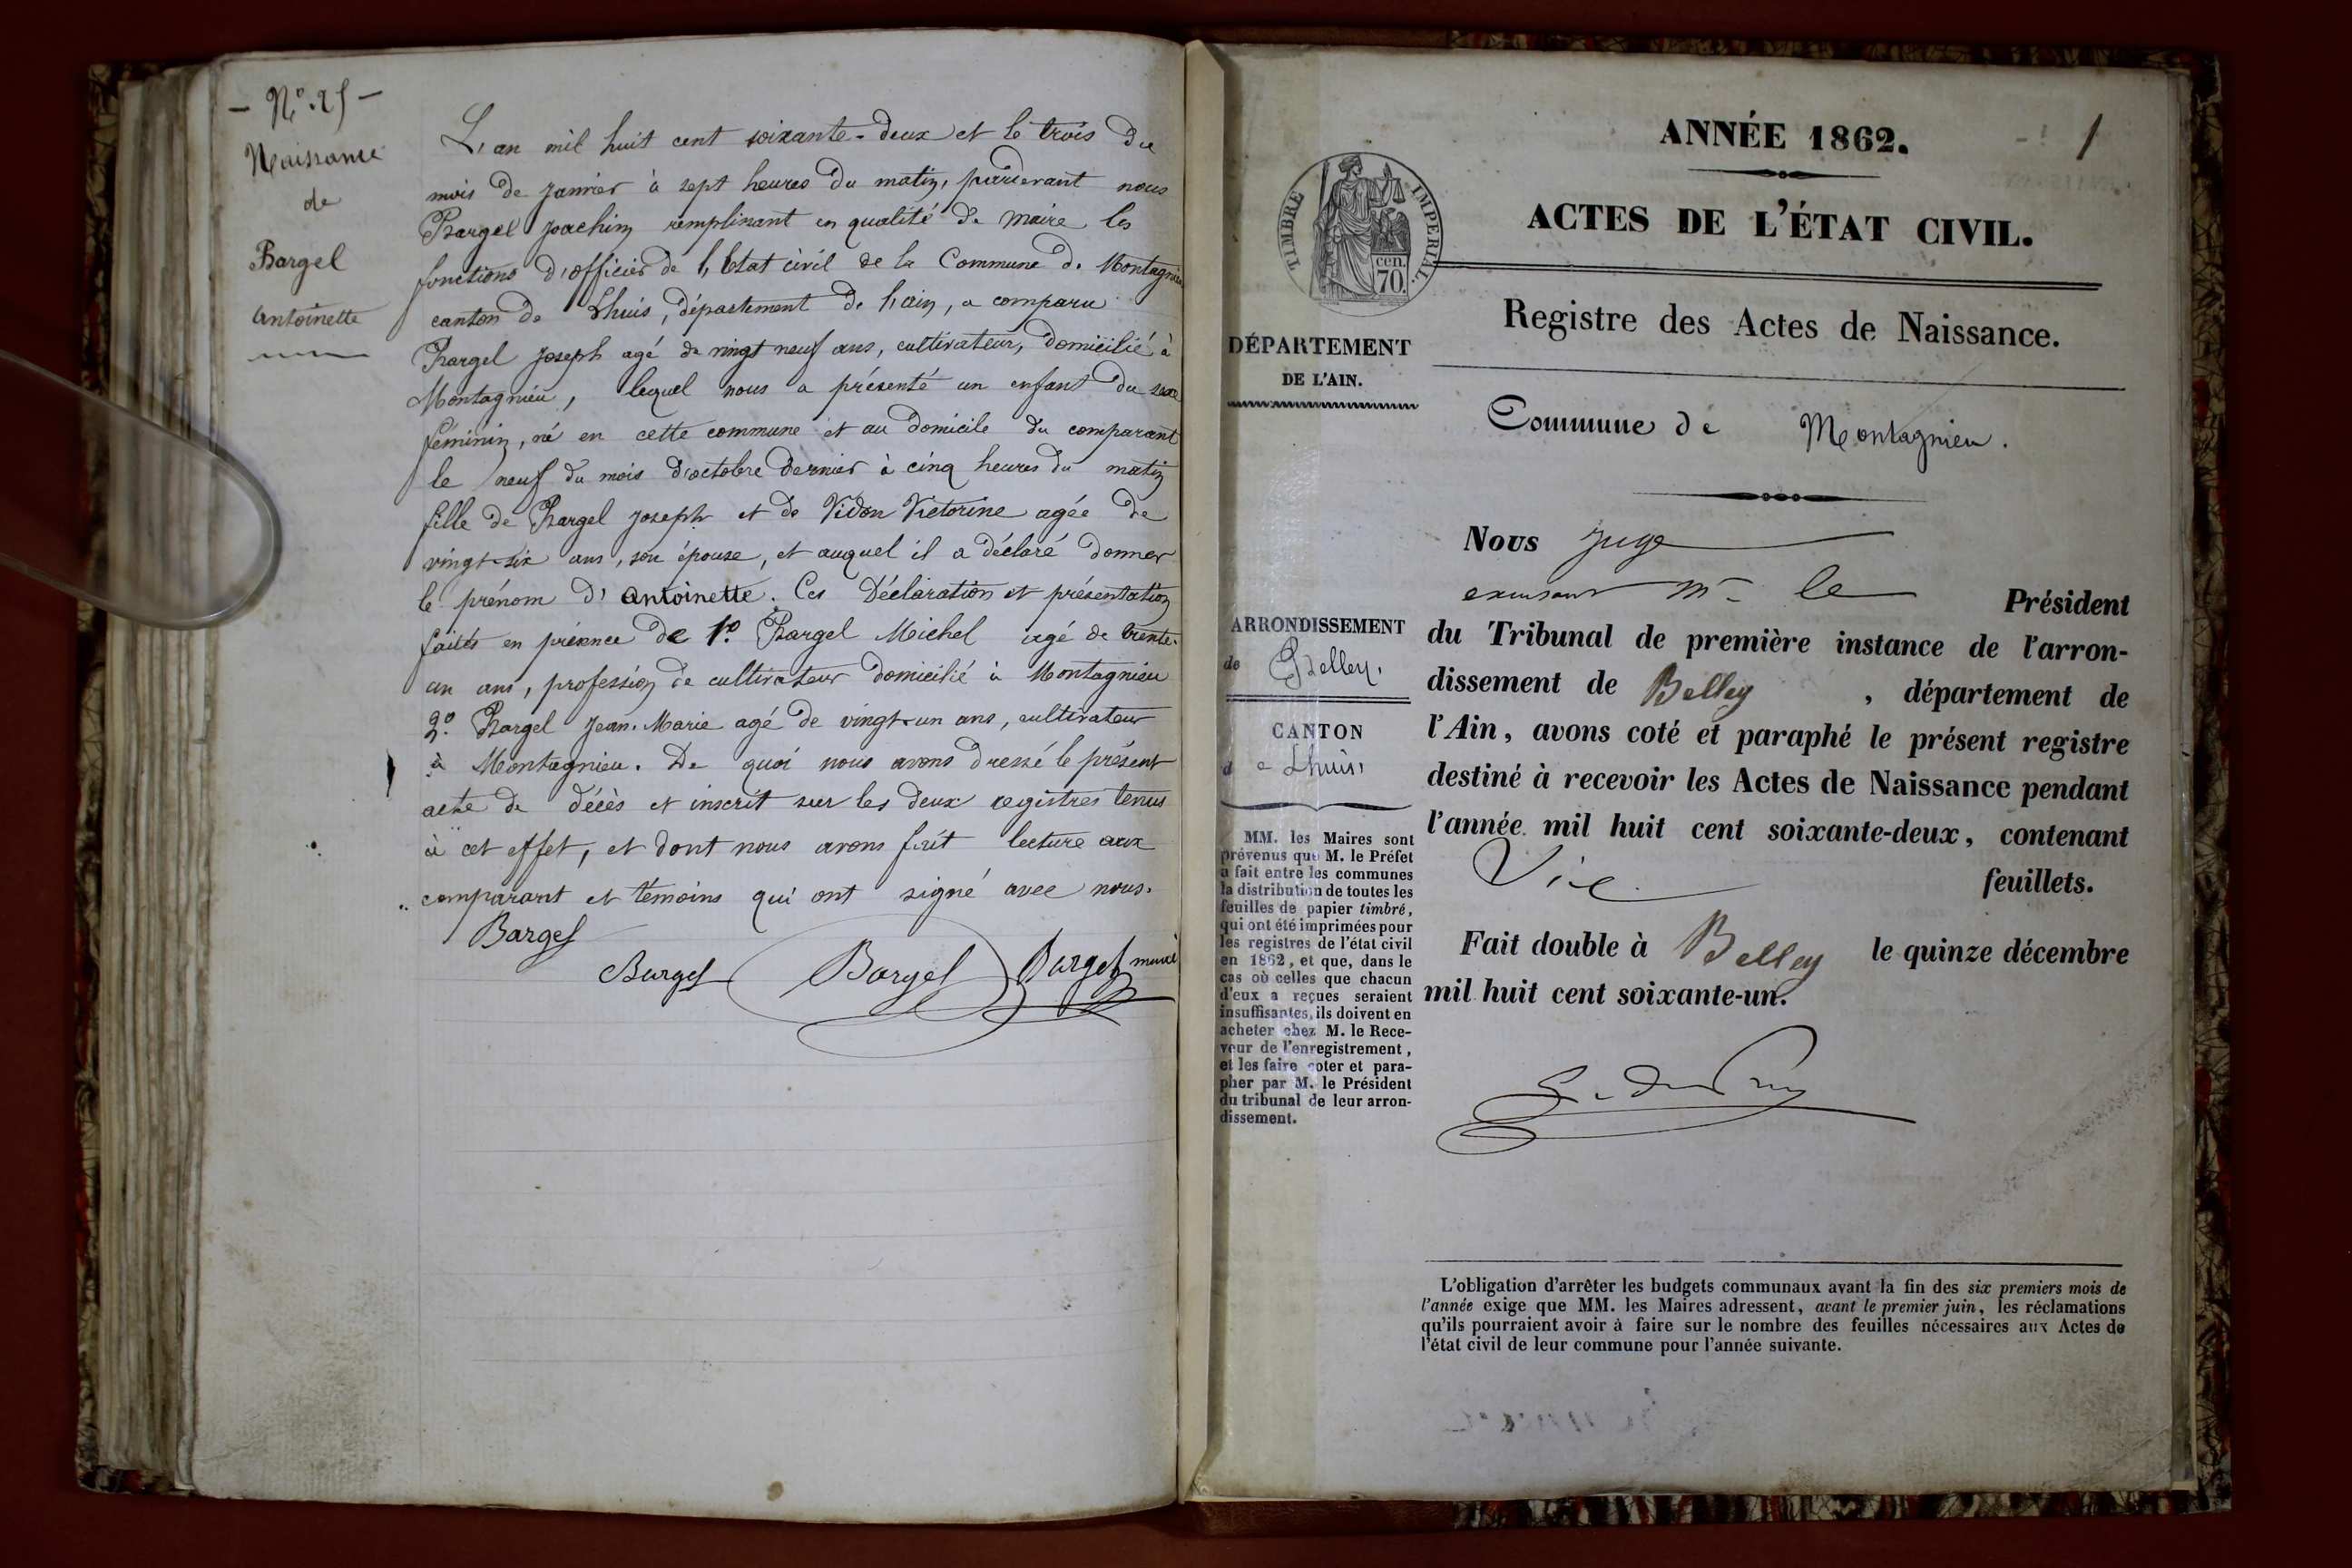 - N.° 25 -
Naissance
de
Bargel
Antoinette
L'an mil huit cent soixante-deux et le trois du
mois de janvier à sept heures du matin, pardevant nous
Bargel Joachim remplissant en qualité de Maire les
fonctions d'officier de l'état civil de la Commune de Montagnieu
canton de Lhuis, département de l'ain, a comparu
Bargel Joseph agé de vingt neuf ans, cultivateur, domicilié à
Montagnieu, lequel nous a présenté un enfant du sexe
féminin, né en cette commune et au domicile du comparant
le neuf du mois d'octobre dernier à cinq heures du matin
fille de Bargel Joseph et de Vidon Victorine agée de
vingt-six ans, son épouse, et auquel il a déclaré donner
le prénom d'Antoinette. Ces déclaration et présentation
faites en présence de 1.° Bargel Michel agé de trente-
un ans, profession de cultivateur domicilié à Montagnieu
2.° Bargel Jean-Marie agé de vingt-un ans, cultivateur
à Montagnieu. De quoi nous avons dressé le présent
acte de décès et inscrit sur les deux registres tenus
à cet effet, et dont nous avons fait lecture aux
comparant et témoins qui ont signé avec nous.
Bargel
Bargel Bargel Bargel
1
ANNÉE 1862.
ACTES DE L'ÉTAT CIVIL.
TIMBRE IMPÉRIAL.
cen.
70.
Registre des Actes de Naissance.
DÉPARTEMENT
DE L'AIN.
Commune de Montagnieu.
ARRONDISSEMENT
de Belley.
CANTON
de Lhuis
MM. les Maires sont
prévenus que M. le Préfet
a fait entre les communes
la distribution de toutes les
feuilles de papier timbré,
qui ont été imprimées pour
les registres de l'état civil
en 1862, et que, dans le
cas où celles que chacun
d'eux a reçues seraient
insuffisantes, ils doivent en
acheter chez M. le Rece-
veur de l'enregistrement,
et les faire coter et para-
pher par M. le Président
du tribunal de leur arron-
dissement.
Nous juge
M. le Président
du Tribunal de première instance de l'arron-
dissement de Belley, département de
l'Ain, avons coté et paraphé le présent registre
destiné à recevoir les Actes de Naissance pendant
l'année mil huit cent soixante-deux, contenant
feuillets.
Fait double à Belley le quinze décembre
mil huit cent soixante-un.
L'obligation d'arrêter les budgets communaux avant la fin des six premiers mois de
l'année exige que MM. les Maires adressent, avant le premier juin, les réclamations
qu'ils pourraient avoir à faire sur le nombre des feuilles nécessaires aux Actes de
l'état civil de leur commune pour l'année suivante.